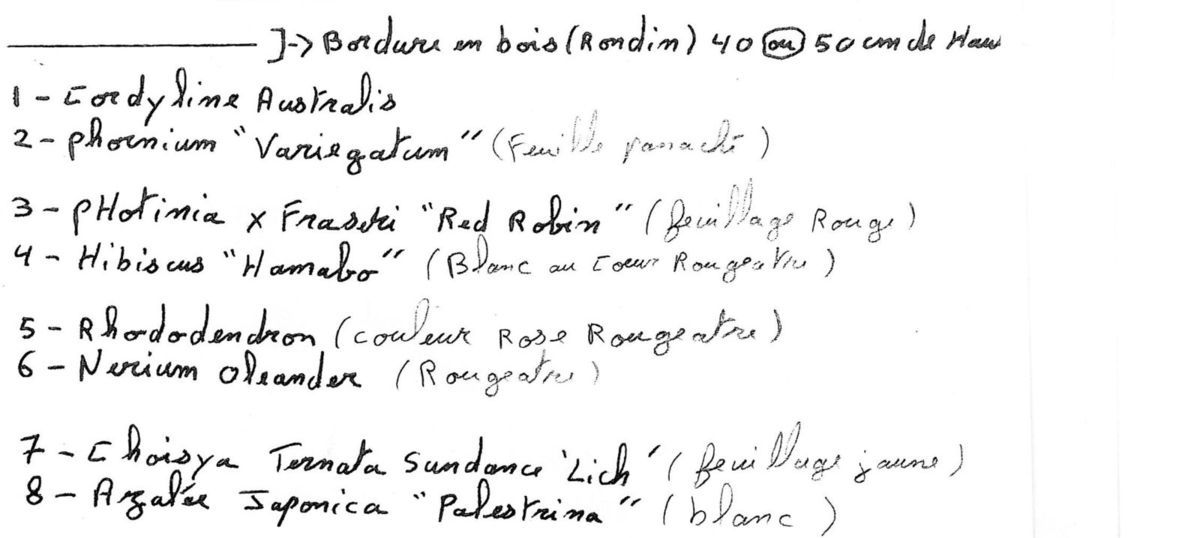 ]-> Bordure en bois (Rondin) 40 ou 50 cm de Haut
1 - Cordyline Australis
2 - phormium "Variegatum" (Feuille panaché)
3 - pHotinia x Fraseri "Red Robin" (feuillage Rouge)
4 - Hibiscus "Hamabo" (Blanc au Coeur Rougeatre)
5 - Rhododendron (couleur Rose Rougeatre)
6 - Nerium oleander (Rougeatre)
7 - Choisya Ternata Sundance 'Lich' (feuillage jaune)
8 - Azalée Japonica "Palestrina" (blanc)